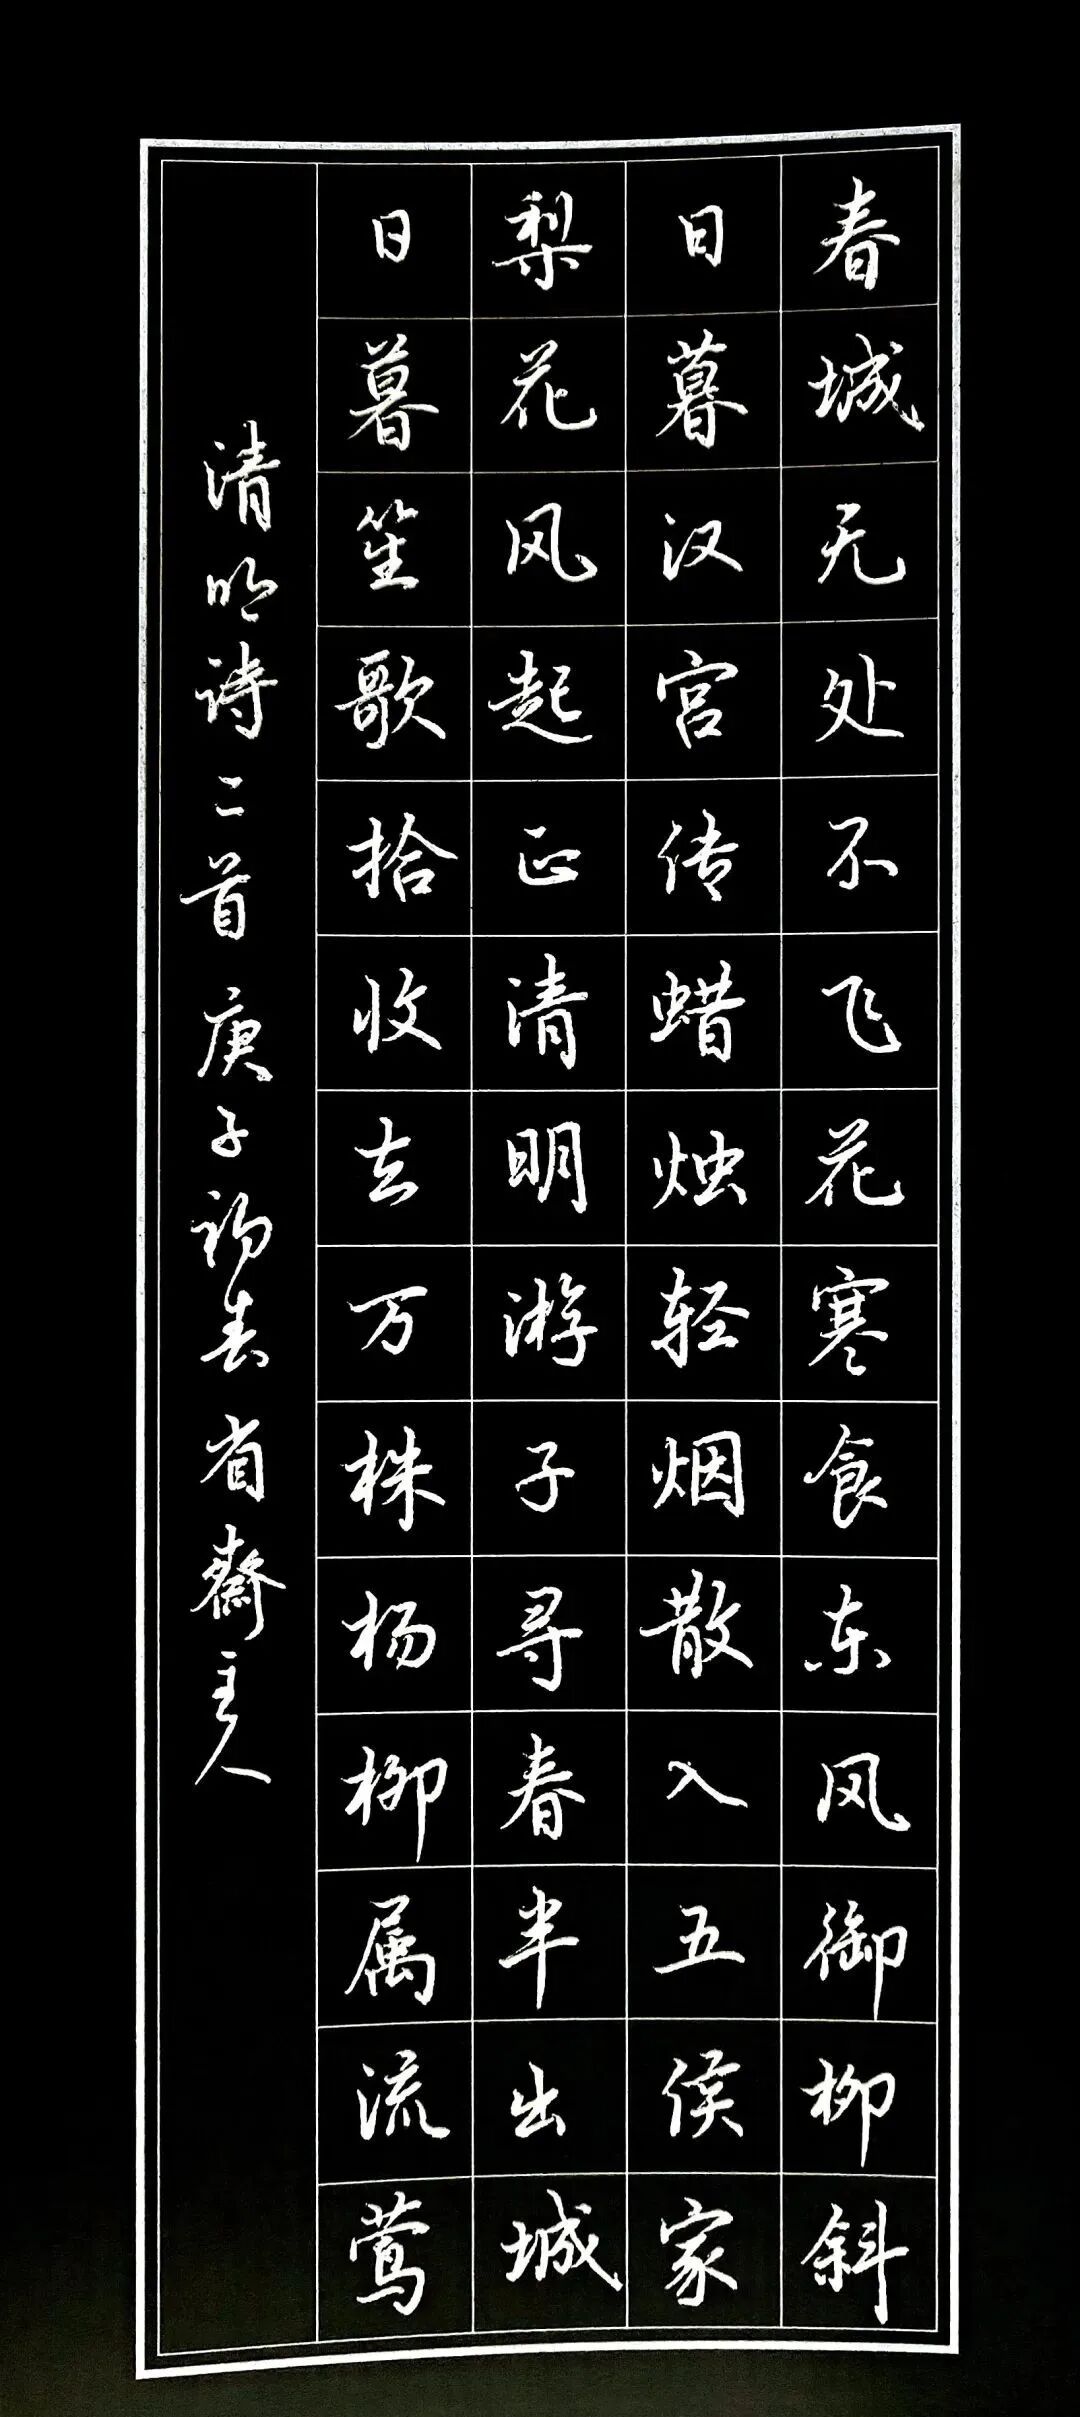 春城无处不飞花寒食东风御柳斜
日暮汉宫传蜡烛轻烟散入五侯家
梨花风起正清明游子寻春半出城
日暮笙歌拾收去万株杨柳属流莺
清明诗二首 庚子初春 省斋主人